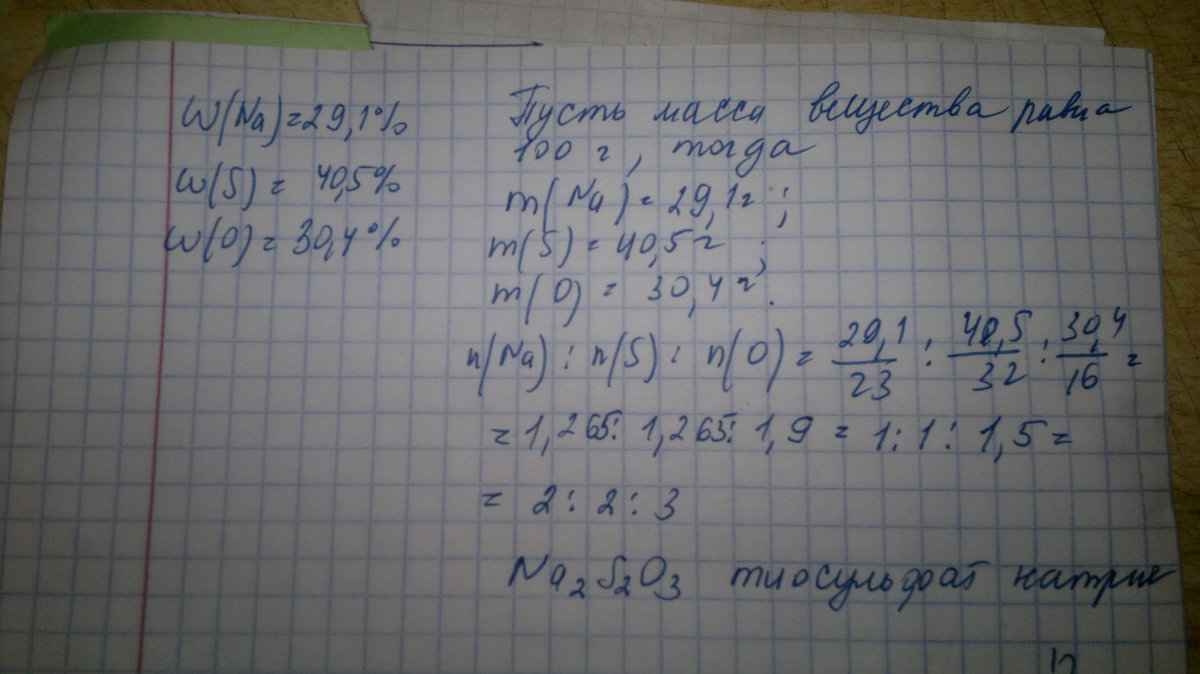 W(Na)=29,1%
W(S) = 40,5%
W(O) = 30,4%
Пусть масса вещества равна
100 г, тогда
m(Na) = 29,1г ;
m(S) = 40,5 г ;
m(O) = 30,4 г.
n(Na) : n(S) : n(O) = 29,1/23 : 40,5/32 : 30,4/16 =
= 1,265: 1,265: 1,9 = 1:1: 1,5 =
= 2:2:3
Na₂S₂O₃ тиосульфат натрие